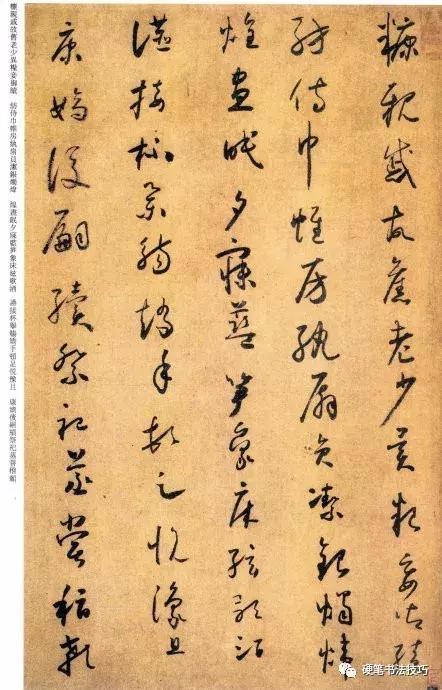 糠親戚故舊老少異糧妾御績
紡侍巾帷房紈扇員潔銀燭煒
煌晝眠夕寐藍笋象床弦歌酒
讌接杯舉觴矯手頓足悅豫且
康嫡後嗣續祭祀蒸嘗稽顙
糠親戚故舊老少異糧妾御績　紡侍巾帷房紈扇員潔銀燭煒　煌晝眠夕寐藍笋象床弦歌酒　讌接杯舉觴矯手頓足悅豫且　康嫡後嗣續祭祀蒸嘗稽顙
硬笔书法技巧